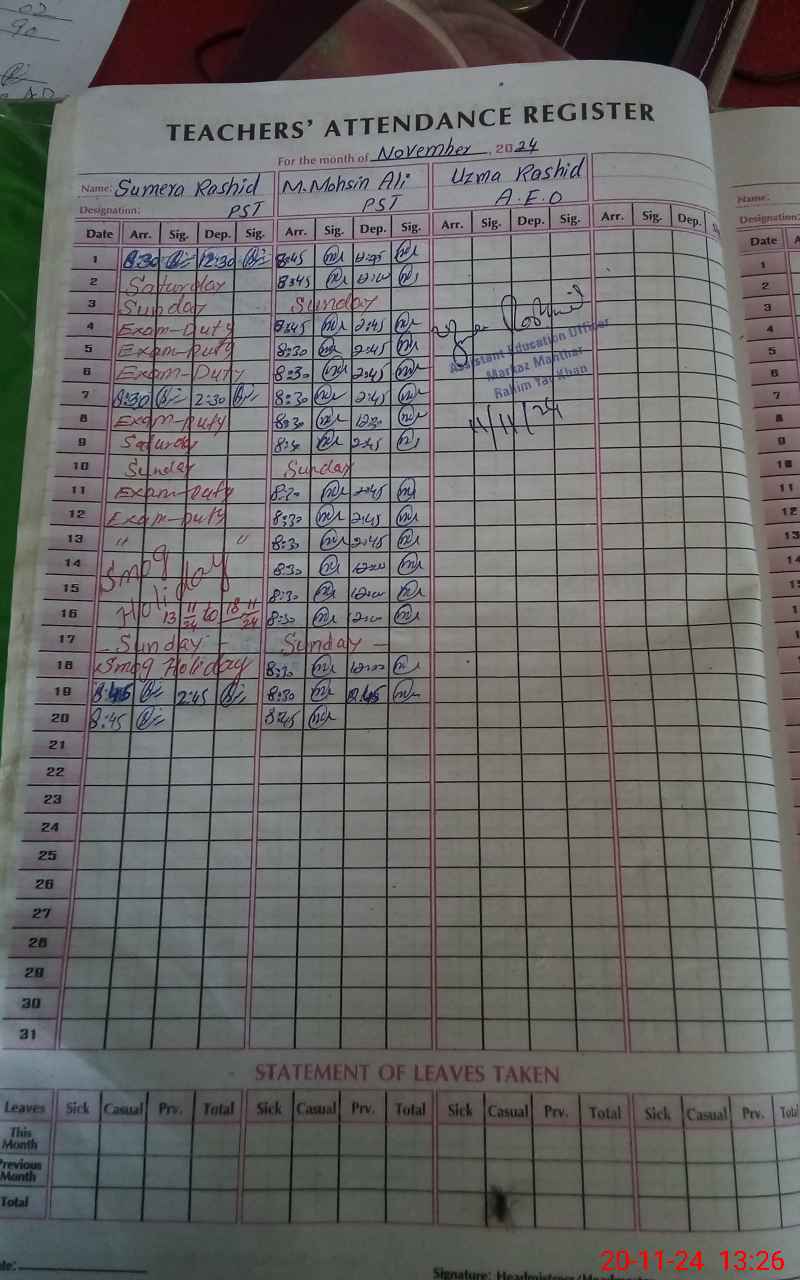 02
90
TEACHERS' ATTENDANCE REGISTER
For the month of November, 2024
Name: Sumera Rashid M. Mohsin Ali Uzma Rashid
Designation: PST PST A.E.O
Date Arr. Sig. Dep. Sig. Arr. Sig. Dep. Sig. Arr. Sig. Dep. Sig. Arr. Sig. Dep.
1 8:30 12:30 8:45
2 Saturday 8:45
3 Sunday Sunday
4 Exam-Duty 8:45 2:45
5 Exam-Duty 8:30 2:45
6 Exam-Duty 8:30 2:45
7 8:30 2:30 8:30 2:45
8 Exam-Duty 8:30
9 Saturday 2:45
10 Sunday Sunday
11 Exam-Duty 2:45
12 Exam-Duty 8:30 2:45
13 " " 8:30 2:45
14 Smog 8:30
15 Holiday 8:30
16 13 11/24 to 18 11/24 8:30
17 Sunday - Sunday -
18 Smog Holiday 8:30
19 8:45 2:45 8:30 2:45
20 8:45 8:45
Assistant Education Officer
Markaz Manthar
Rahim Yar Khan
11/11/24
21
22
23
24
25
26
27
28
29
30
31
STATEMENT OF LEAVES TAKEN
Leaves Sick Casual Prv. Total Sick Casual Prv. Total Sick Casual Prv. Total Sick Casual Prv.
This
Month
Previous
Month
Total
Signature: Headmistress/
Name:
Designation:
Date
1
2
3
4
5
6
7
8
9
10
11
12
13
20-11-24 13:26